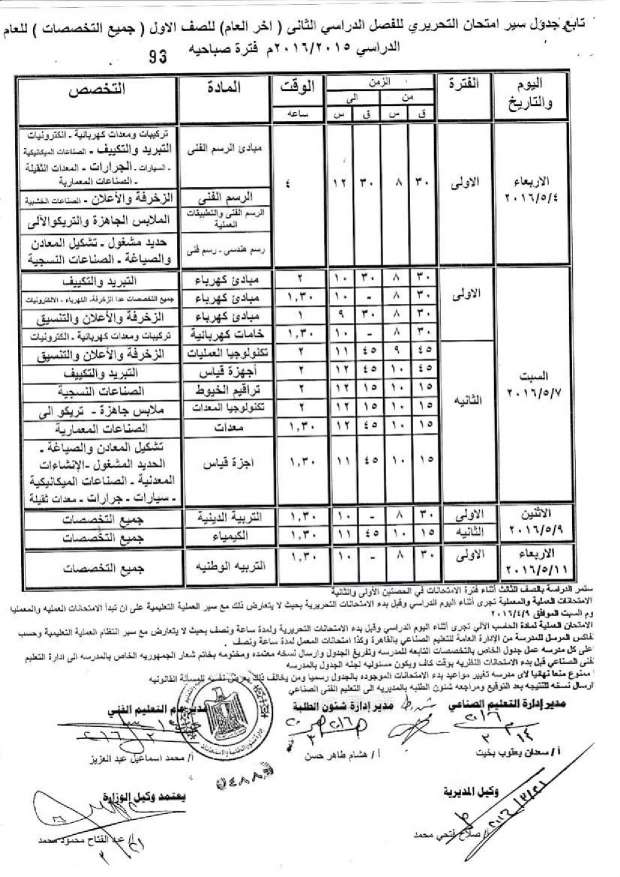 تابع جدول سير امتحان التحريري للفصل الدراسي الثانى ( اخر العام) للصف الاول ( جميع التخصصات ) للعام
الدراسي ٢٠١٦/٢٠١٥م فترة صباحيه
93
اليوم والتاريخ الفترة الزمن الوقت المادة التخصص
من الى ساعه
ق س ق س
الاربعاء ٢٠١٦/٥/٤ الاولى ٣٠ ٨ ٣٠ ١٢ ٤ مبادئ الرسم الفنى تركيبات ومعدات كهربائية - الكترونيات
التبريد والتكييف - الصناعات الميكانيكية
- السيارات - الجرارات - المعدات الثقيلة
- الصناعات المعمارية
الرسم الفنى الزخرفة والأعلان - الصناعات الخشبية
الرسم الفنى والتطبيقات العملية الملابس الجاهزة والتريكوالآلى
رسم هندسى - رسم فنى حديد مشغول - تشكيل المعادن
والصياغة - الصناعات النسجية
السبت ٢٠١٦/٥/٧ الاولى ٣٠ ٨ ٣٠ ١٠ ٢ مبادئ كهرباء التبريد والتكييف
٣٠ ٨ - ١٠ ١,٣٠ مبادئ كهرباء جميع التخصصات عدا الزخرفة- الكهرباء - الالكترونيات
٣٠ ٨ ٣٠ ٩ ١ مبادئ كهرباء الزخرفة والأعلان والتنسيق
٣٠ ٨ - ١٠ ١,٣٠ خامات كهربائية تركيبات ومعدات كهربائية - الكترونيات
الثانيه ٤٥ ٩ ٤٥ ١١ ٢ تكنولوجيا العمليات الزخرفة والأعلان والتنسيق
٤٥ ١٠ ٤٥ ١٢ ٢ أجهزة قياس التبريد والتكييف
١٥ ١٠ ١٥ ١٢ ٢ تراقيم الخيوط الصناعات النسجية
١٥ ١٠ ١٥ ١٢ ٢ تكنولوجيا المعدات ملابس جاهزة - تريكو الى
١٥ ١٠ ٤٥ ١١ ١,٣٠ معدات الصناعات المعمارية
١٥ ١٠ ٤٥ ١١ ١,٣٠ اجزة قياس تشكيل المعادن والصياغة -
الحديد المشغول -الإنشاءات
المعدنية - الصناعات الميكانيكية
- سيارات - جرارات - معدات ثقيلة
الاثنين ٢٠١٦/٥/٩ الاولى ٣٠ ٨ - ١٠ ١,٣٠ التربية الدينية جميع التخصصات
الثانيه ١٥ ١٠ ٤٥ ١١ ١,٣٠ الكيمياء جميع التخصصات
الاربعاء ٢٠١٦/٥/١١ الاولى ٣٠ ٨ - ١٠ ١,٣٠ التربيه الوطنيه جميع التخصصات
ستمر الدراسة بالصف الثالث أثناء فترة الامتحانات في الحصتين الأولى والثانية
الامتحانات العملية والمعملية تجرى أثناء اليوم الدراسي وقبل بدء الامتحانات التحريرية بحيث لا يتعارض ذلك مع سير العملية التعليمية على ان تبدأ الامتحانات العمليه والمعمليا
وم السبت الموافق ٢٠١٦/٤/٩
الامتحان العملية لمادة الحاسب الآلي تجرى أثناء اليوم الدراسي وقبل بدء الامتحانات التحريرية ولمدة ساعة ونصف بحيث لا يتعارض مع سير النظام العملية التعليمية وحسب
فاكس المرسل للمدرسة من الإدارة العامة للتعليم الصناعي بالقاهرة وكذا امتحانات المعمل لمدة ساعة ونصف
على كل مدرسه عمل جدول الخاص بالتخصصات التابعه للمدرسه وتفريغ الجدول وإرسال نسخه معتمده ومختومه بخاتم شعار الجمهوريه الخاص بالمدرسه الى ادارة التعليم
فنى الصناعي قبل بدء الامتحانات النظريه بوقت كاف ويكون مسئوليه لجنه الجدول بالمدرسه
ممنوع منعا نهائيا لاى مدرسه تغيير مواعيد بدء الامتحانات الموجوده بالجدول رسميا ومن يخالف ذلك يعرض نفسه للمسألة القانونيه
ارسال نسخه للنتيجه بعد التوقيع ومراجعه شئون الطلبه بالمديريه الى التعليم الفنى الصناعي
مدير إدارة التعليم الصناعي مدير إدارة شئون الطلبة مدير عام التعليم الفني
أ/ سعدان يعقوب بخيت أ / هشام طاهر حسن أ/ محمد اسماعيل عبد العزيز
وكيل المديرية يعتمد وكيل الوزارة
أ/ صلاح فتحي محمد أ/ عبد الفتاح محمود محمد